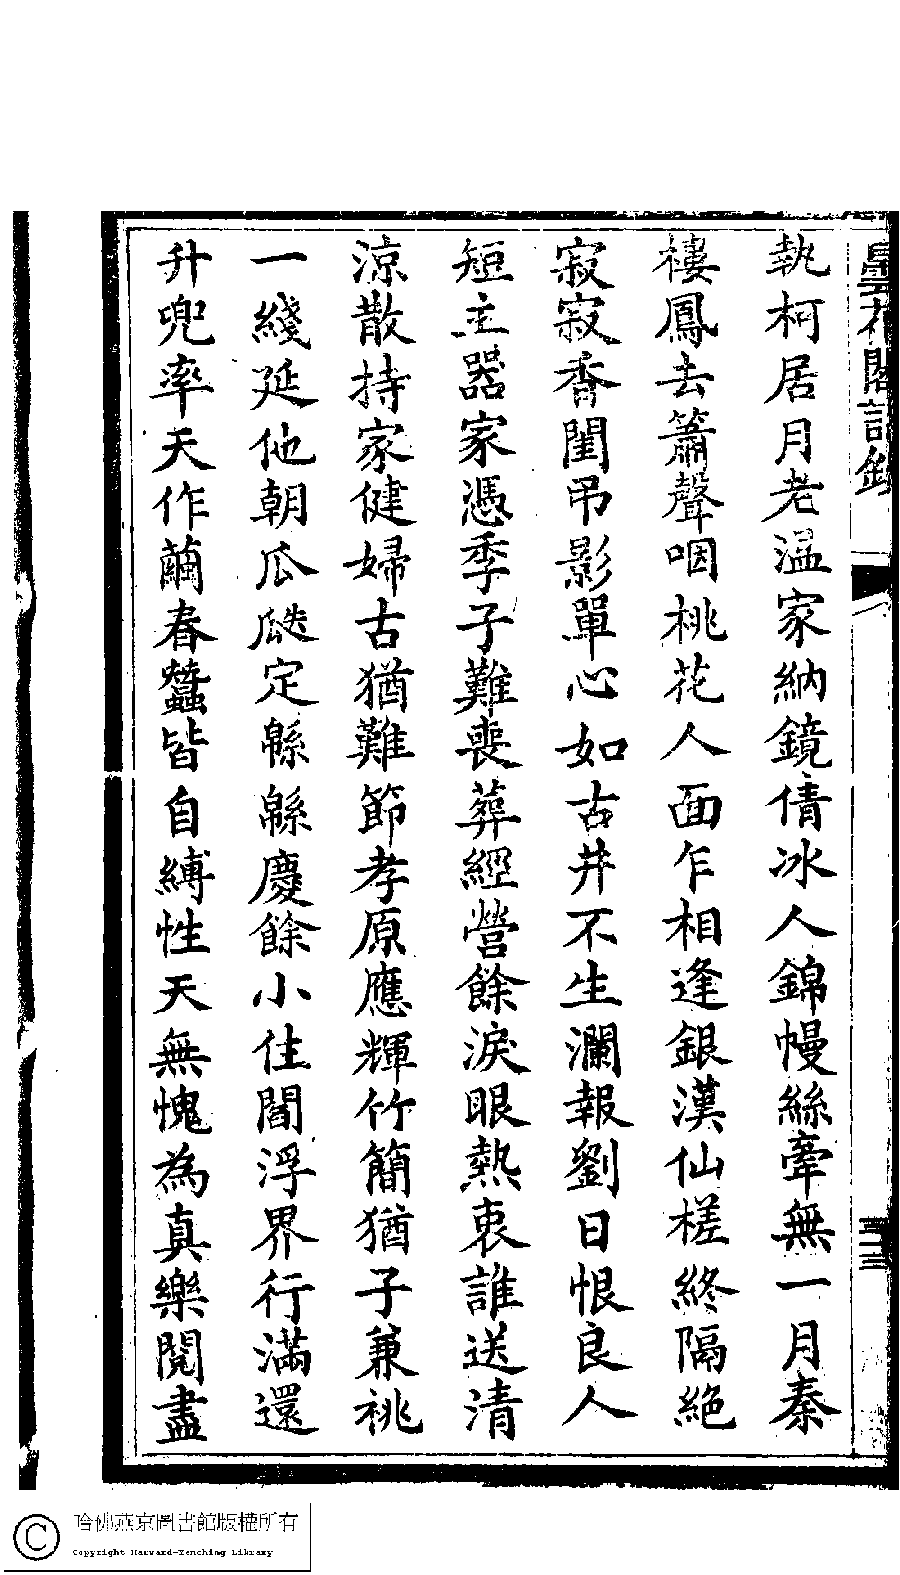 執柯居月老溫家納鏡倩冰人錦幔絲牽無一月秦
樓鳳去簫聲咽桃花人面乍相逢銀漢仙槎終隔絶
寂寂香閨弔影單心如古井不生瀾報劉日恨良人
短主器家憑季子難喪葬經營餘淚眼熱衷誰送清
涼散持家健婦古猶難節孝原應輝竹簡猶子兼祧
一綫延他朝瓜瓞定緜緜慶餘小住閻浮界行滿還
升兜率天作繭春蠶皆自縛性天無愧為真樂閱盡
哈佛燕京圖書館版權所有
Copyright Harvard-Yenching Library